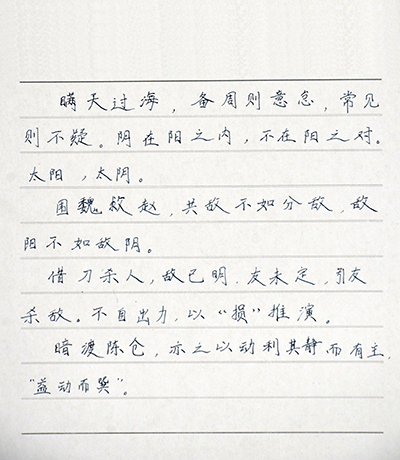 瞒天过海，备周则意怠，常见
则不疑。阴在阳之内，不在阳之对。
太阳，太阴。
围魏救赵，共敌不如分敌，敌
阳不如敌阴。
借刀杀人，敌已明，友未定，引友
杀敌。不自出力，以“损”推演。
暗渡陈仓，示之以动利其静而有主，
“益动而巽”。